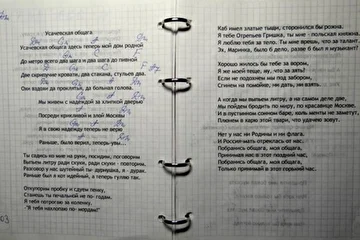 Усачевская общага
Усачевская общага здесь теперь мой дом родной
До метро всего два шага и два шага до пивной
Две скрипучие кровати, два стакана, стульев два.
Они вздохи да проклятья, да больная голова.
Мы живем с надеждой за хлипкой дверью
Посреди крикливой и злой Москвы
Я в свою надежду теперь не верю
Раньше, было верил, теперь увы...
Ты садись ко мне на руки, посидим, поговорим
Выпьем литру ради скуки, ради скуки - повторим.
Разговор у нас шутейный ты- дурнушка, я - дурак
Раньше был я кот идейный, а теперь гуляю так.
Откупорим пробку и сдуем пенку,
Станешь ты печальной не по- годам.
Я тебя потрогаю за коленку,
"Я тебя нахлопаю по- мордам!"
Каб имел златые тыщи, сторонился бы рожна.
Я тебе Отрепьев Гришка, ты мне - польская княжна.
Я люблю тебя за тело. Ты мне врешь, что за талант.
Эх, Маринка, было б дело, разве б был я музыкант!
Хорошо жилось бы тебе за вором,
Я же моей теще, му, что за зять!
Если не подохнем мы под забором,
Сгинем на помойке, ни дать, ни взять.
А когда мы выпьем литру, а на самом деле две,
Мы пойдем бродить по миру, по красавице Москве.
И в пустынном сонном баре, коль менты не заметут,
Плюнем в харю этой твари, что удачею зовут.
Нет у нас ни Родины и ни флага.
И Россия-мать отреклась от нас.
Побраньюсь общага, моя общага
Принимай нас в этот поздний час,
Побраньюсь общага, моя общага,
Только принимай в этот горький час.
03